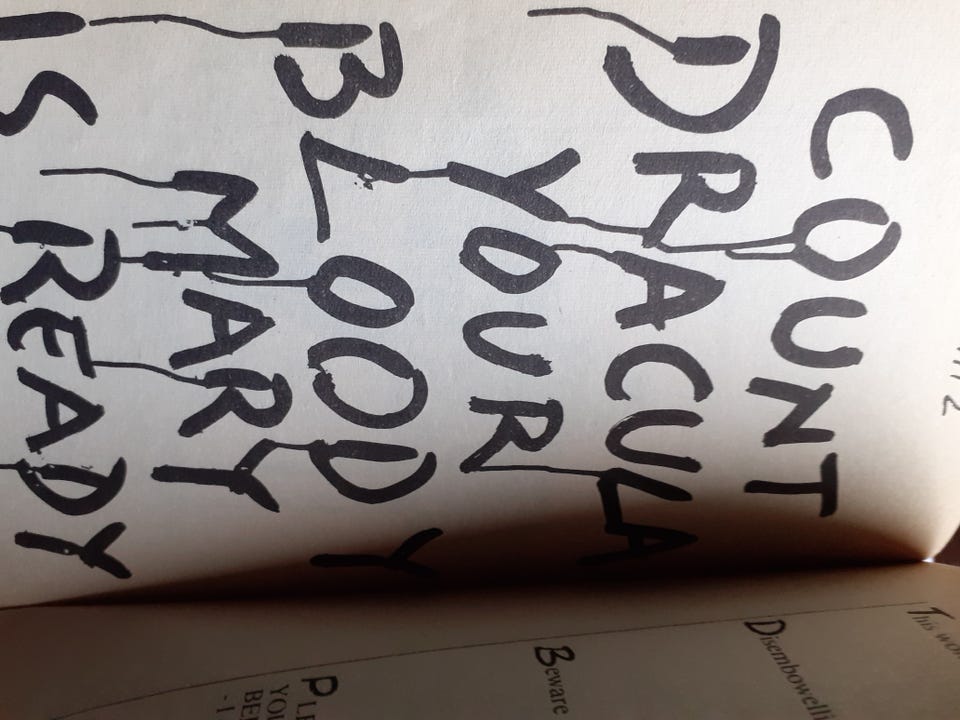 COUNT
DRACULA
YOUR
BLOODY
MARY
IS READY
This
Disembowell
Beware
PL
YOU
BE